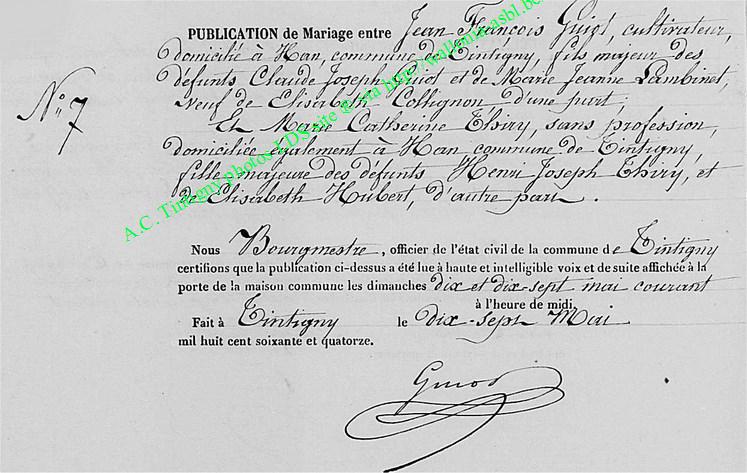 PUBLICATION de Mariage entre Jean François Guiot, cultivateur,
domicilié à Han, commune de Tintigny, fils majeur des
défunts Claude Joseph Guiot et de Marie Jeanne Lambinet,
Veuf de Elisabeth Collignon d'une part,
N° 7
Et Marie Catherine Thiry, sans profession,
domiciliée également à Han commune de Tintigny,
fille majeure des défunts Henri Joseph Thiry, et
de Elisabeth Hubert, d'autre part.
A.C. Tintigny photos LDS site geneta http://wallonia-asbl.be
Nous Bourgmestre, officier de l'état civil de la commune de Tintigny
certifions que la publication ci-dessus a été lue à haute et intelligible voix et de suite affichée à la
porte de la maison commune les dimanches dix et dix-sept mai courant
à l'heure de midi.
Fait à Tintigny le dix-sept Mai
mil huit cent soixante et quatorze.